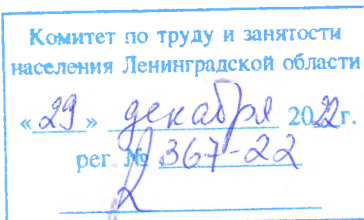 Комитет по труду и занятости
населения Ленинградской области
«29» декабря 2022г.
рег. № 367-22